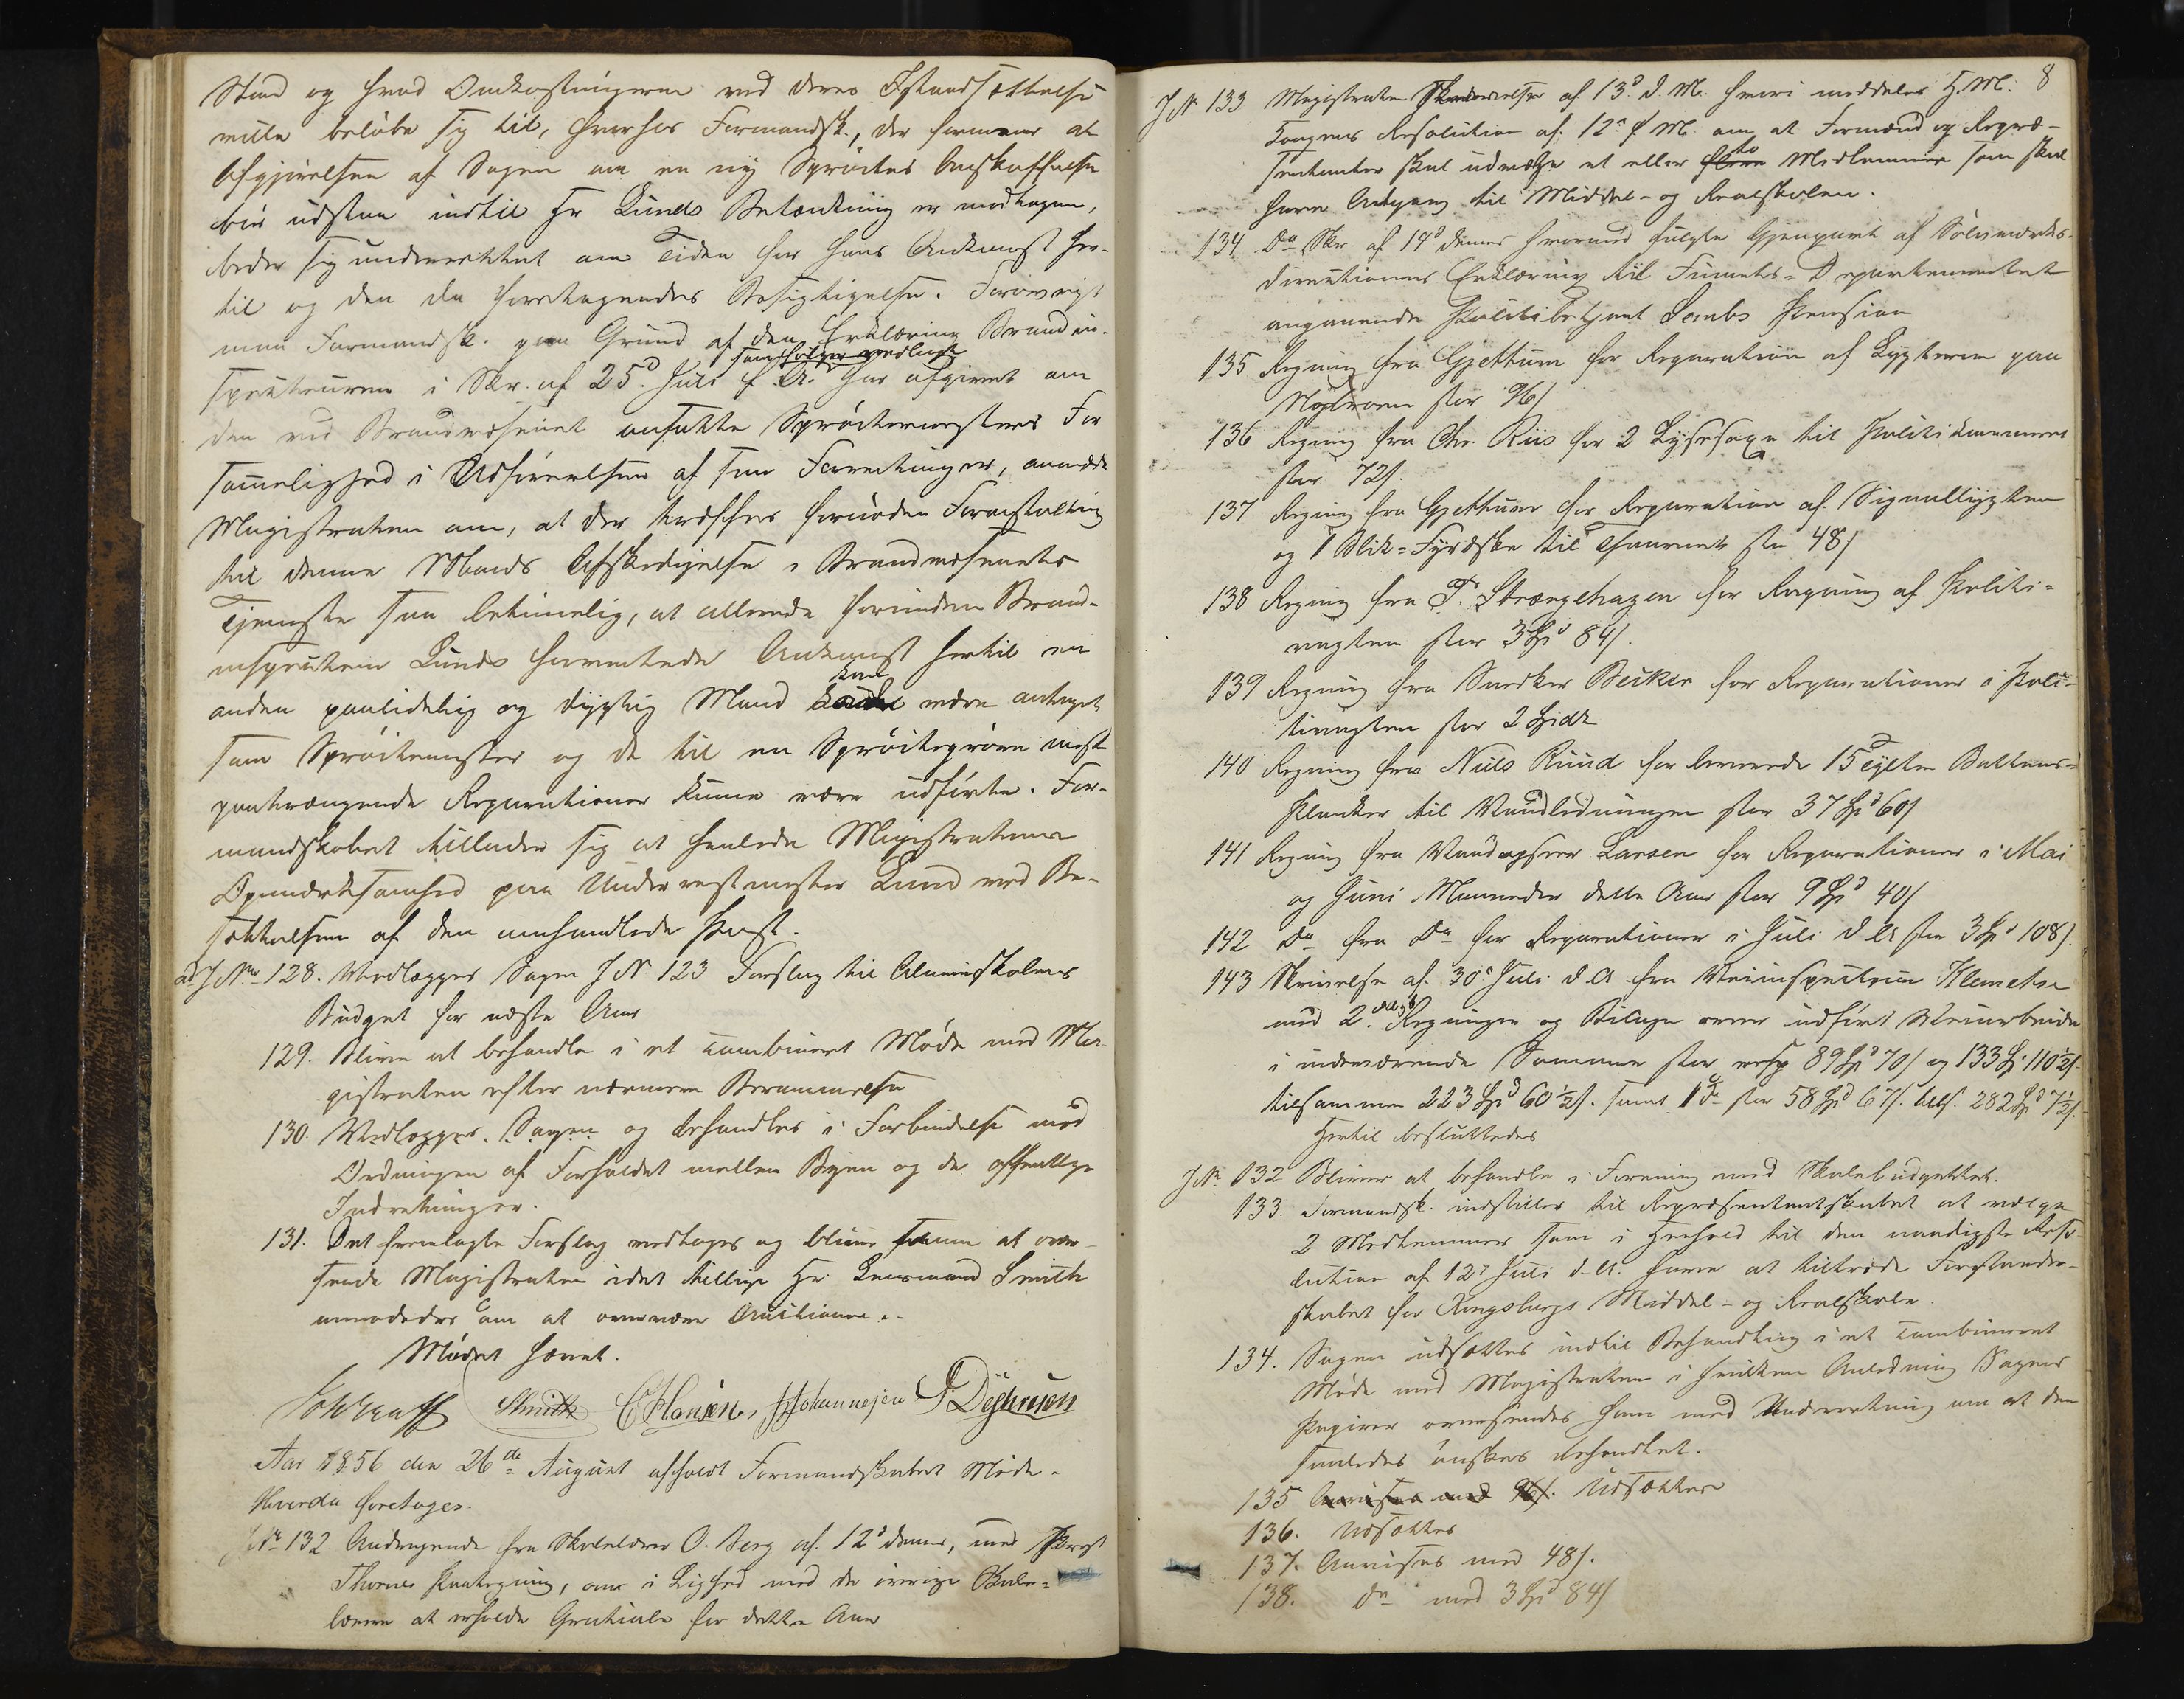 Stand og hvad Omkostningerne ved deres Istandsættelse
ville beløbe sig til, hvorfor Formandsk., der formener at
Afgjørelsen af Sagen om en ny Sprøites Anskaffelse
bør udstaa indtil Hr Lunds Betænkning er modtagen,
beder sig underrettet om Tiden for hans Ankomst her-
til og den da foretagendes Besigtigelse. Forøvrigt
maa Formandsk. paa Grund af den Erklæring Brandin-
som følger vedlagt
specteuren i Skr. af 25d. Juli d. A. har afgivet om
den ved Brandvæsenet ansatte Sprøitemesters For
sømmelighed i Udførelsen af sine Forretninger, anmode
Magistraten om, at der træffes fornøden Foranstaltning
til denne Mands Afskedigelse i Brandvæsenets
Tjeneste saa betimelig, at allerede forinden Brand-
inspecteur Lunds forventede Ankomst hertil en
kan
anden paalidelig og dygtig Mand kunde være antaget
som Sprøitemester og de til en Sprøiteprøve mest
paatrængende Reparationer kunne være udførte. For-
mandskabet tillader sig at henlede Magistratens
Opmærksomhed paa Undervestmester Lund ved Be-
sættelsen af den omhandlede Post.
ad J No 128. Vedlægges Sagen J N. 123 Forslag til Almueskolens
Budget for næste Aar
129. Bliver at behandle i et combineret Møde med Ma-
gistraten efter nærmere Berammelse
130. Vedlægges Sagen og behandles i Forbindelse med
Ordningen af Forholdet mellem Byen og de offentlige
Indretninger.
131. Det fremlagte Forslag vedtoges og bliver at over-
sende Magistraten idet tillige Hr Lensmand Smith
anmodedes om at overvære Auctionen.
Mødet hævet.
Smith C Hansen, Johannesen
Aar 1856 den 26de August afholdt Formandskabet Møde.
Hvorda foretoges.
J No 132 Andragende fra Skolelærer O. Berg af 12d dennes, med Provst
Thornes Paategning, om i Lighed med de øvrige Skole-
lærere at erholde Gratiale for dette Aar
8
J N 133 Magistratens Skrivelse af 13d. d. M. hvori meddeles H. M.
Kongens Resolution af 12 f M. om at Formænd og Repræ-
to
sentanter skal udvælge et eller flere Medlemmer som skal
have Adgang til Middel- og Realskolen.
134 Do Skr. af 14d dennes hvormed fulgte Gjenpart af Sølvværks-
directionens Erklæring til Finants-Departementet
angaaende Politibetjent Pension
135 Regning fra Gjettum for Reparation af Lygterne paa
stor 96s
136 Regning fra Chr. Riis for 2 Lysesaxe til Politikammeret
stor 72s.
137 Regning fra Gjettum for Reparation af Signallygten
og 1 Blik-Fyrdske til Taarnet stor 48s
138 Regning fra P. Strængehagen for Rengjøring af Politi-
vagten stor 3 Spd 84s.
139 Regning fra Snedker Becker for Reparationer i Poli-
tivagten stor 2 Spd
140 Regning fra Niels Ruud for leverede 15 Tylter
Planker til Vandledningen stor 37 Spd 60s
141 Regning fra Vandopsyer Larsen for Reparationer i Mai
og Juni Maaneder dette Aar stor 9 Spd 40s
142 Do fra Do for Reparationer i Juli d A stor 3 Spd 108s.
143 Skrivelse af 30d Juli d A. fra Veiinspecteur Klemetsen
med 2 Regninger og Bilage over udført Veiarbeide
i indeværende Sommer stor resp 89 Spd 70s og 133 Sp. 110½s.
tilsammen 223 Spd 60½s. samt 1 do stor 58 Spd 67s. 282 Spd 7½s.
Hertil besluttedes
J No 132 Bliver at behandle i Forening med Skolebudgettet.
133. Formandsk. indstiller til Repræsentantskabet at vælge
2 Medlemmer som i Henhold til den naadigste Reso
lution af 12 Juli d. A. have at tiltræde Forstander-
skabet for Kongsbergs Middel- og Realskole.
134. Sagen udsættes indtil Behandling i et combineret
Møde med Magistraten i hvilken Anledning Sagens
Papirer oversendes ham med Underretning om at den
saaledes ønskes behandlet.
135 Anvises med 96s. Udsættes
136. Udsættes
137. Anvises med 48s.
138. do med 3 Spd 84s